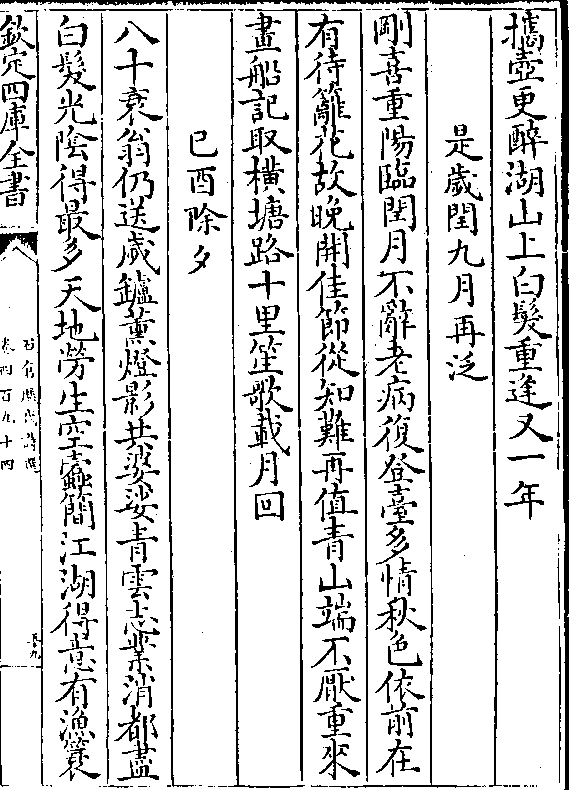 攜壺更醉湖山上白髮重逢又一年
是歲閏九月再泛
剛喜重陽臨閏月不辭老病復登臺多情秋色依前在
有待籬花故晚開佳節從知難再值青山端不厭重來
畫船記取橫塘路十里笙歌載月回
己酉除夕
八十衰翁仍送歲鑪薰燈影共婆娑青雲志業消都盡
白髮光陰得最多天地勞生空蠹簡江湖得意有漁簑
欽定四庫全書
石倉歷代詩選
卷四百九十四